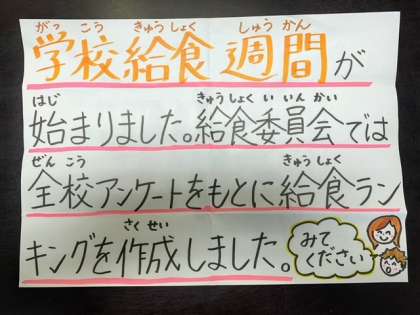 がっ こう きゅう しょく しゅう かん
学校給食週間が
はじ きゅう しょく い いん かい
始まりました。給食委員会では
ぜん こう きゅう しょく
全校アンケートをもとに給食ラン
さく せい
キングを作成しました。
みて
ください